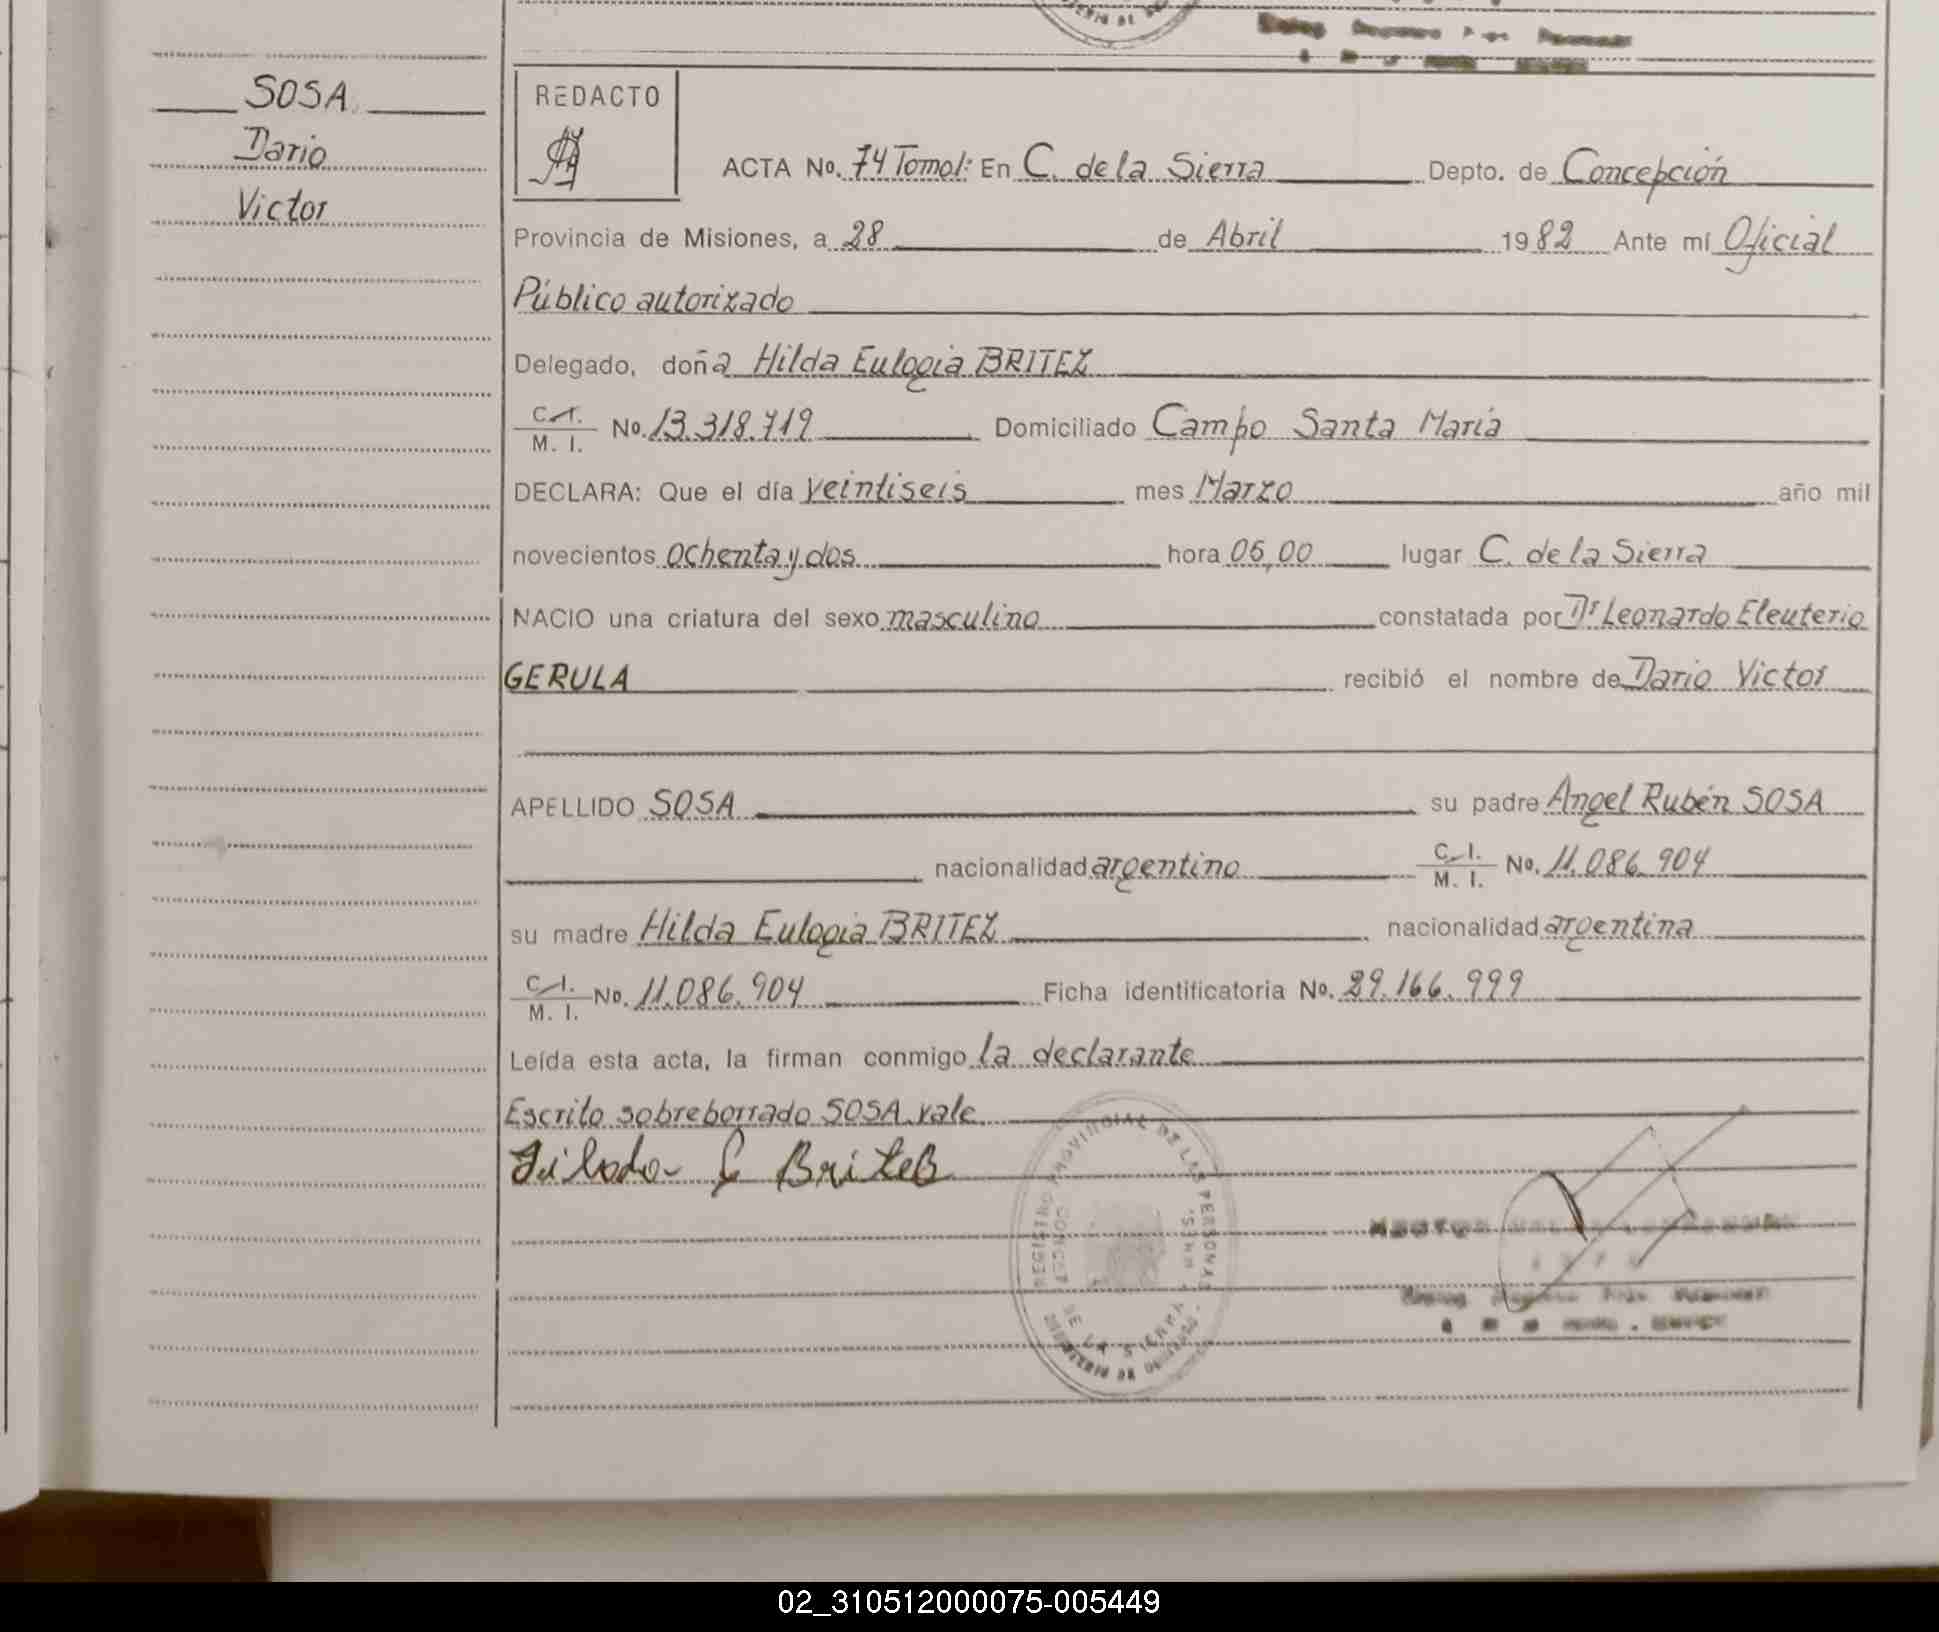 SOSA
Dario
Victor
REDACTO
ACTA No. 74 Tomo I: En C. de la Sierra Depto. de Concepción
Provincia de Misiones, a 28 de Abril 1982 Ante mí Oficial
Público autorizado
Delegado, doña Hilda Eulogia BRITEZ
C.I. M. I. No. 13.318.719 Domiciliado Campo Santa María
DECLARA: Que el día veintiseis mes Marzo año mil
novecientos ochenta y dos hora 05,00 lugar C. de la Sierra
NACIO una criatura del sexo masculino constatada por Dr Leonardo Eleuterio
GERULA recibió el nombre de Dario Victor
APELLIDO SOSA su padre Angel Rubén SOSA
nacionalidad argentino C.I. M. I. No. 11.086.904
su madre Hilda Eulogia BRITEZ nacionalidad argentina
C.I. M. I. No. 11.086.904 Ficha identificatoria No. 29.166.999
Leída esta acta, la firman conmigo la declarante
Escrito sobreborrado SOSA vale
REGISTRO PROVINCIAL DE LAS PERSONAS
DE LA SIERRA
02_310512000075-005449